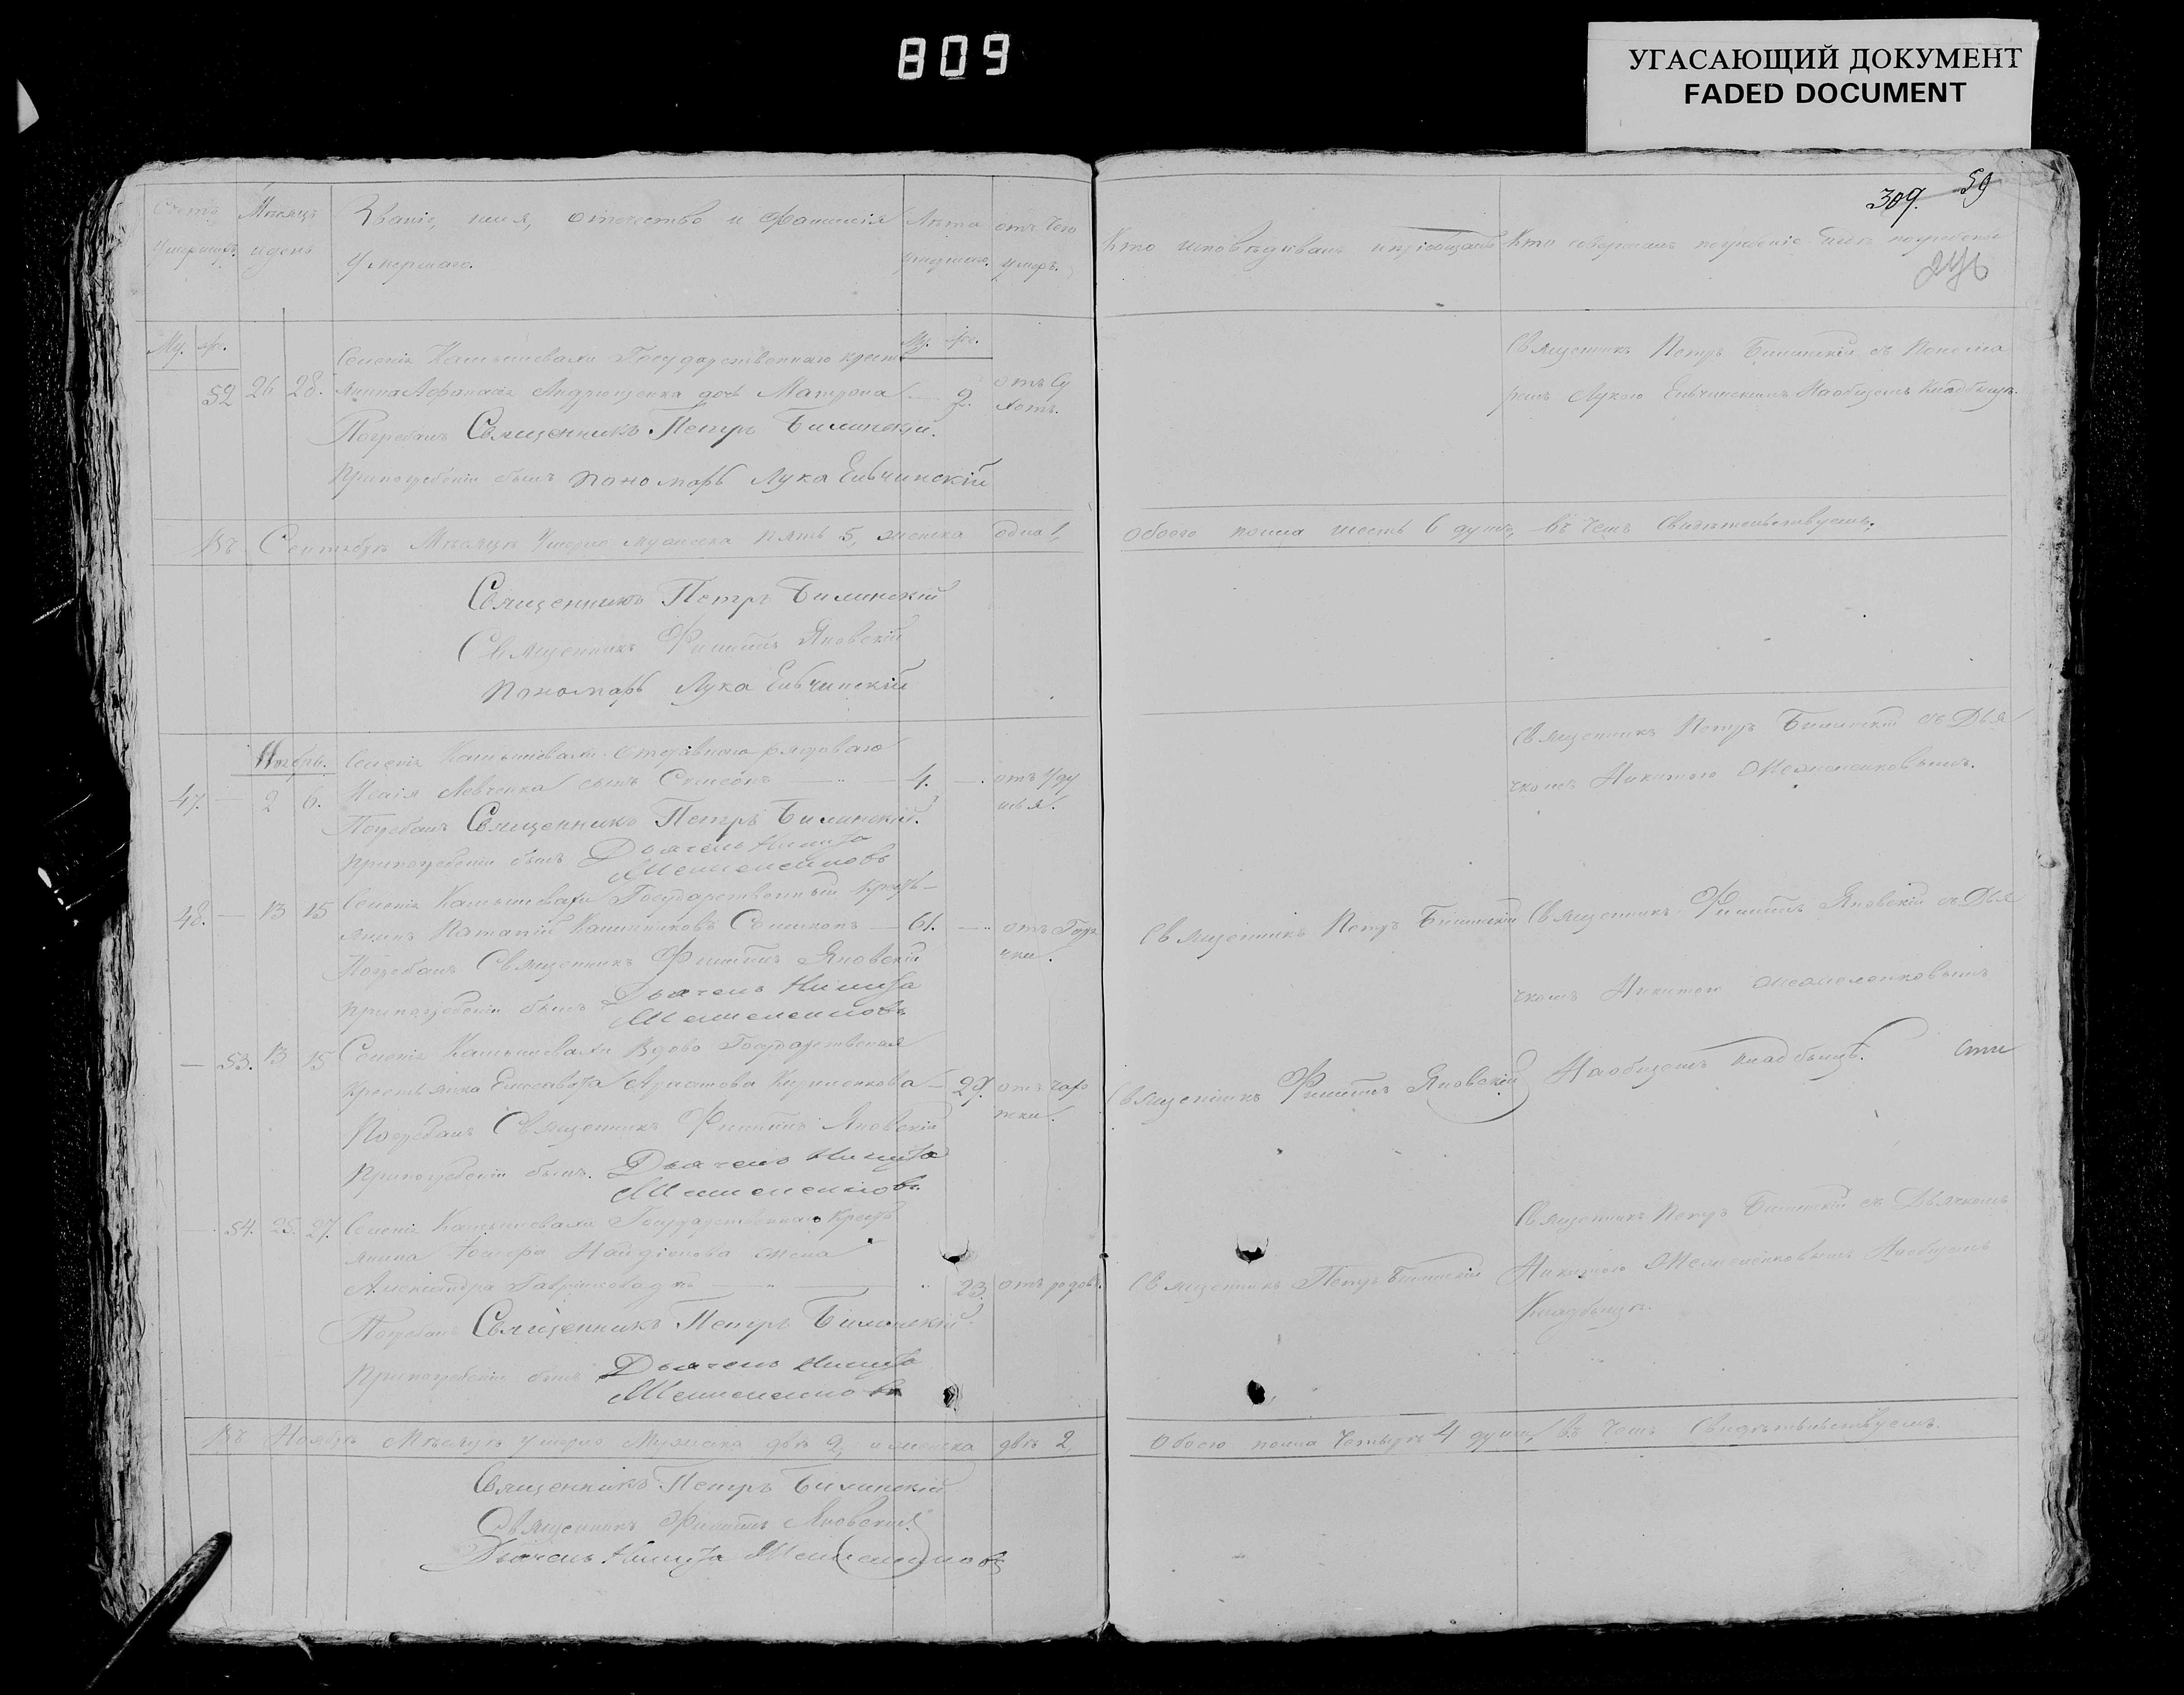 809
УГАСАЮЩИЙ ДОКУМЕНТ
FADED DOCUMENT
309. 59
Счетъ умершихъ. Мѣсяцъ и день Званіе, имя, отчество и фамилія умершаго. Лѣта умершаго. отъ чего умеръ.
Кто исповѣдывалъ и пріобщалъ Кто совершалъ погребеніе и гдѣ погребены
Му. же. Му. же.
Селенія Камышевахи Государственнаго крест
52 26 28. янина Афанасія Андрющенка дочь Матрона 2. отъ су
хотъ.
Погребалъ Священникъ Петръ Билинскій.
При погребеніи былъ Пономарь Лука Евчинскій
Священникъ Петръ Билинскій съ Понома
ремъ Лукою Евчинскимъ На общемъ Кладбищѣ.
Въ Сентябрѣ Мѣсяцѣ Умерло мужеска пять 5, женска одна 1,
Обоего пола шесть 6 душъ, въ чемъ свидѣтельствуемъ.
Священникъ Петръ Билинскій
Священникъ Филиппъ Яновскій
Пономарь Лука Евчинскій
Ноябрь. Селенія Камышевахи отставнаго рядоваго
47. — 2 6. Исаія Левченка сынъ Симеонъ 4. — отъ уду
шья.
Погребалъ Священникъ Петръ Билинскій.
При погребеніи былъ Дьячекъ Никита
Священникъ Петръ Билинскій съ Дья
чкомъ Никитою
Селенія Камышевахи Государственный Кресть
48. — 13 15 янинъ Потапій Сошкопъ — 61. — отъ Горя
чки.
Погребалъ Священникъ Филиппъ Яновскій
При погребеніи былъ Дьячекъ Никита
Священникъ Петръ Билинскій Священникъ Филиппъ Яновскій съ Дья
чкомъ Никитою
— 53. 13 15 Селенія Камышевахи Вдова Государственая
Крестьянка Елисавета Кириленкова — 29. отъ
Погребалъ Священникъ Филиппъ Яновскій
При погребеніи былъ. Дьячекъ Никита
Священникъ Филиппъ Яновскій На общемъ кладбищѣ.
— 54. 25. 27. Селенія Камышевахи Государственнаго Кресть
янина Найдіонова жена
Александра Гаврилова дочь 23. отъ родовъ.
Погребалъ Священникъ Петръ Билинскій.
При погребеніи былъ Дьячекъ Никита
Священникъ Петръ Билинскій
Священникъ Петръ Билинскій съ Дьячкомъ
Никитою На общемъ
Кладбищѣ.
Въ Ноябрѣ Мѣсяцѣ умерло Мужеска два 2, и женска двѣ 2
Обоего пола четыре 4 души, въ чемъ Свидѣтельствуемъ.
Священникъ Петръ Билинскій
Священникъ Филиппъ Яновскій
Дьячекъ Никита